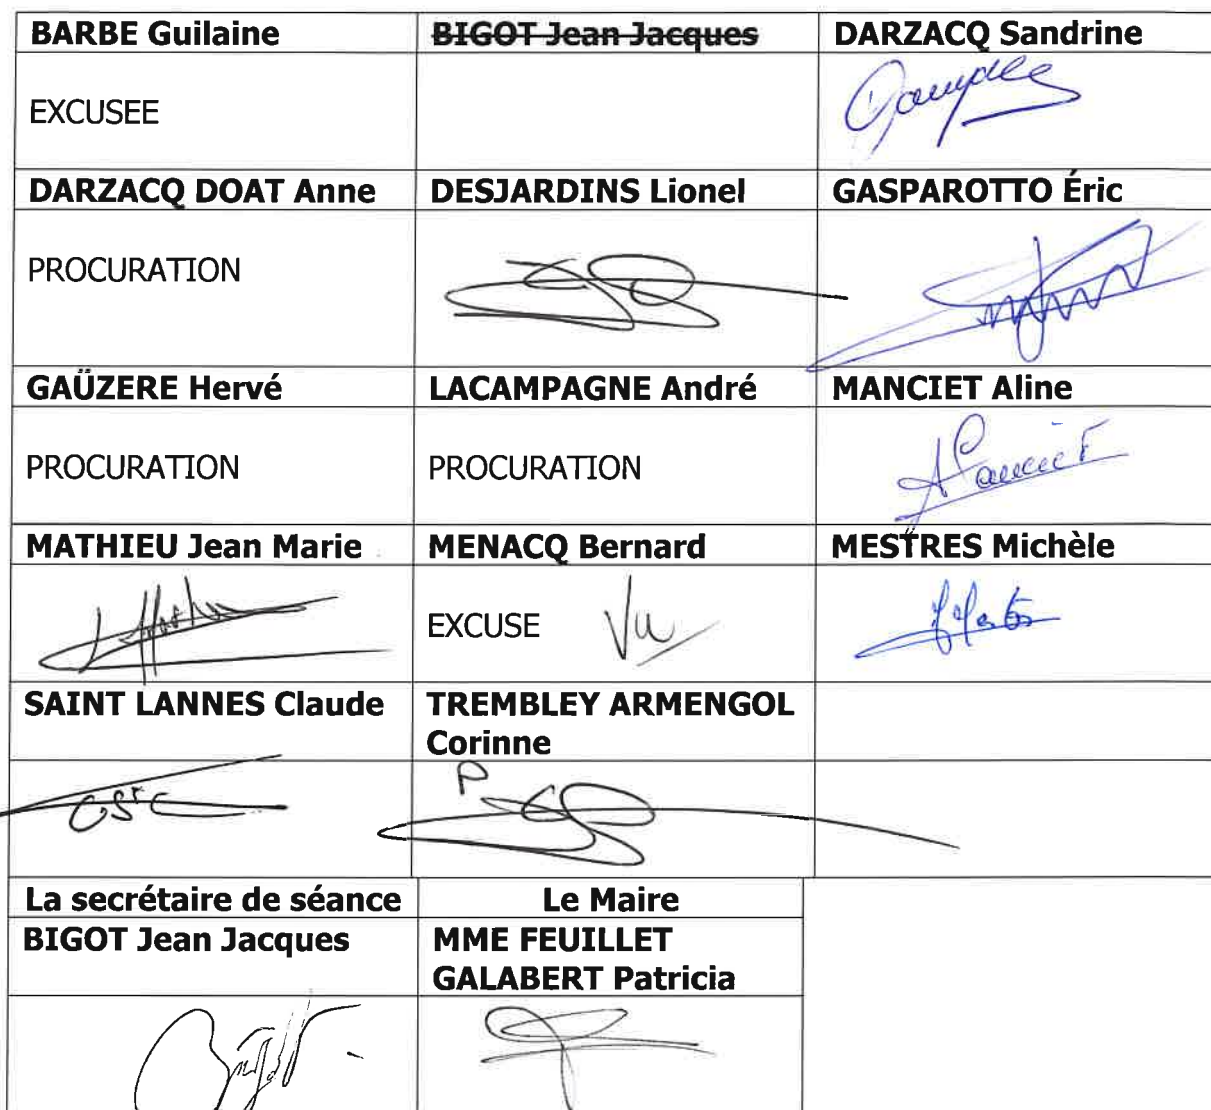 BARBE Guilaine
BIGOT Jean Jacques
DARZACQ Sandrine
EXCUSEE
DARZACQ DOAT Anne
DESJARDINS Lionel
GASPAROTTO Éric
PROCURATION
GAÜZERE Hervé
LACAMPAGNE André
MANCIET Aline
PROCURATION
PROCURATION
MATHIEU Jean Marie
MENACQ Bernard
MESTRES Michèle
EXCUSE
Vu
SAINT LANNES Claude
TREMBLEY ARMENGOL
Corinne
P
La secrétaire de séance
Le Maire
BIGOT Jean Jacques
MME FEUILLET
GALABERT Patricia